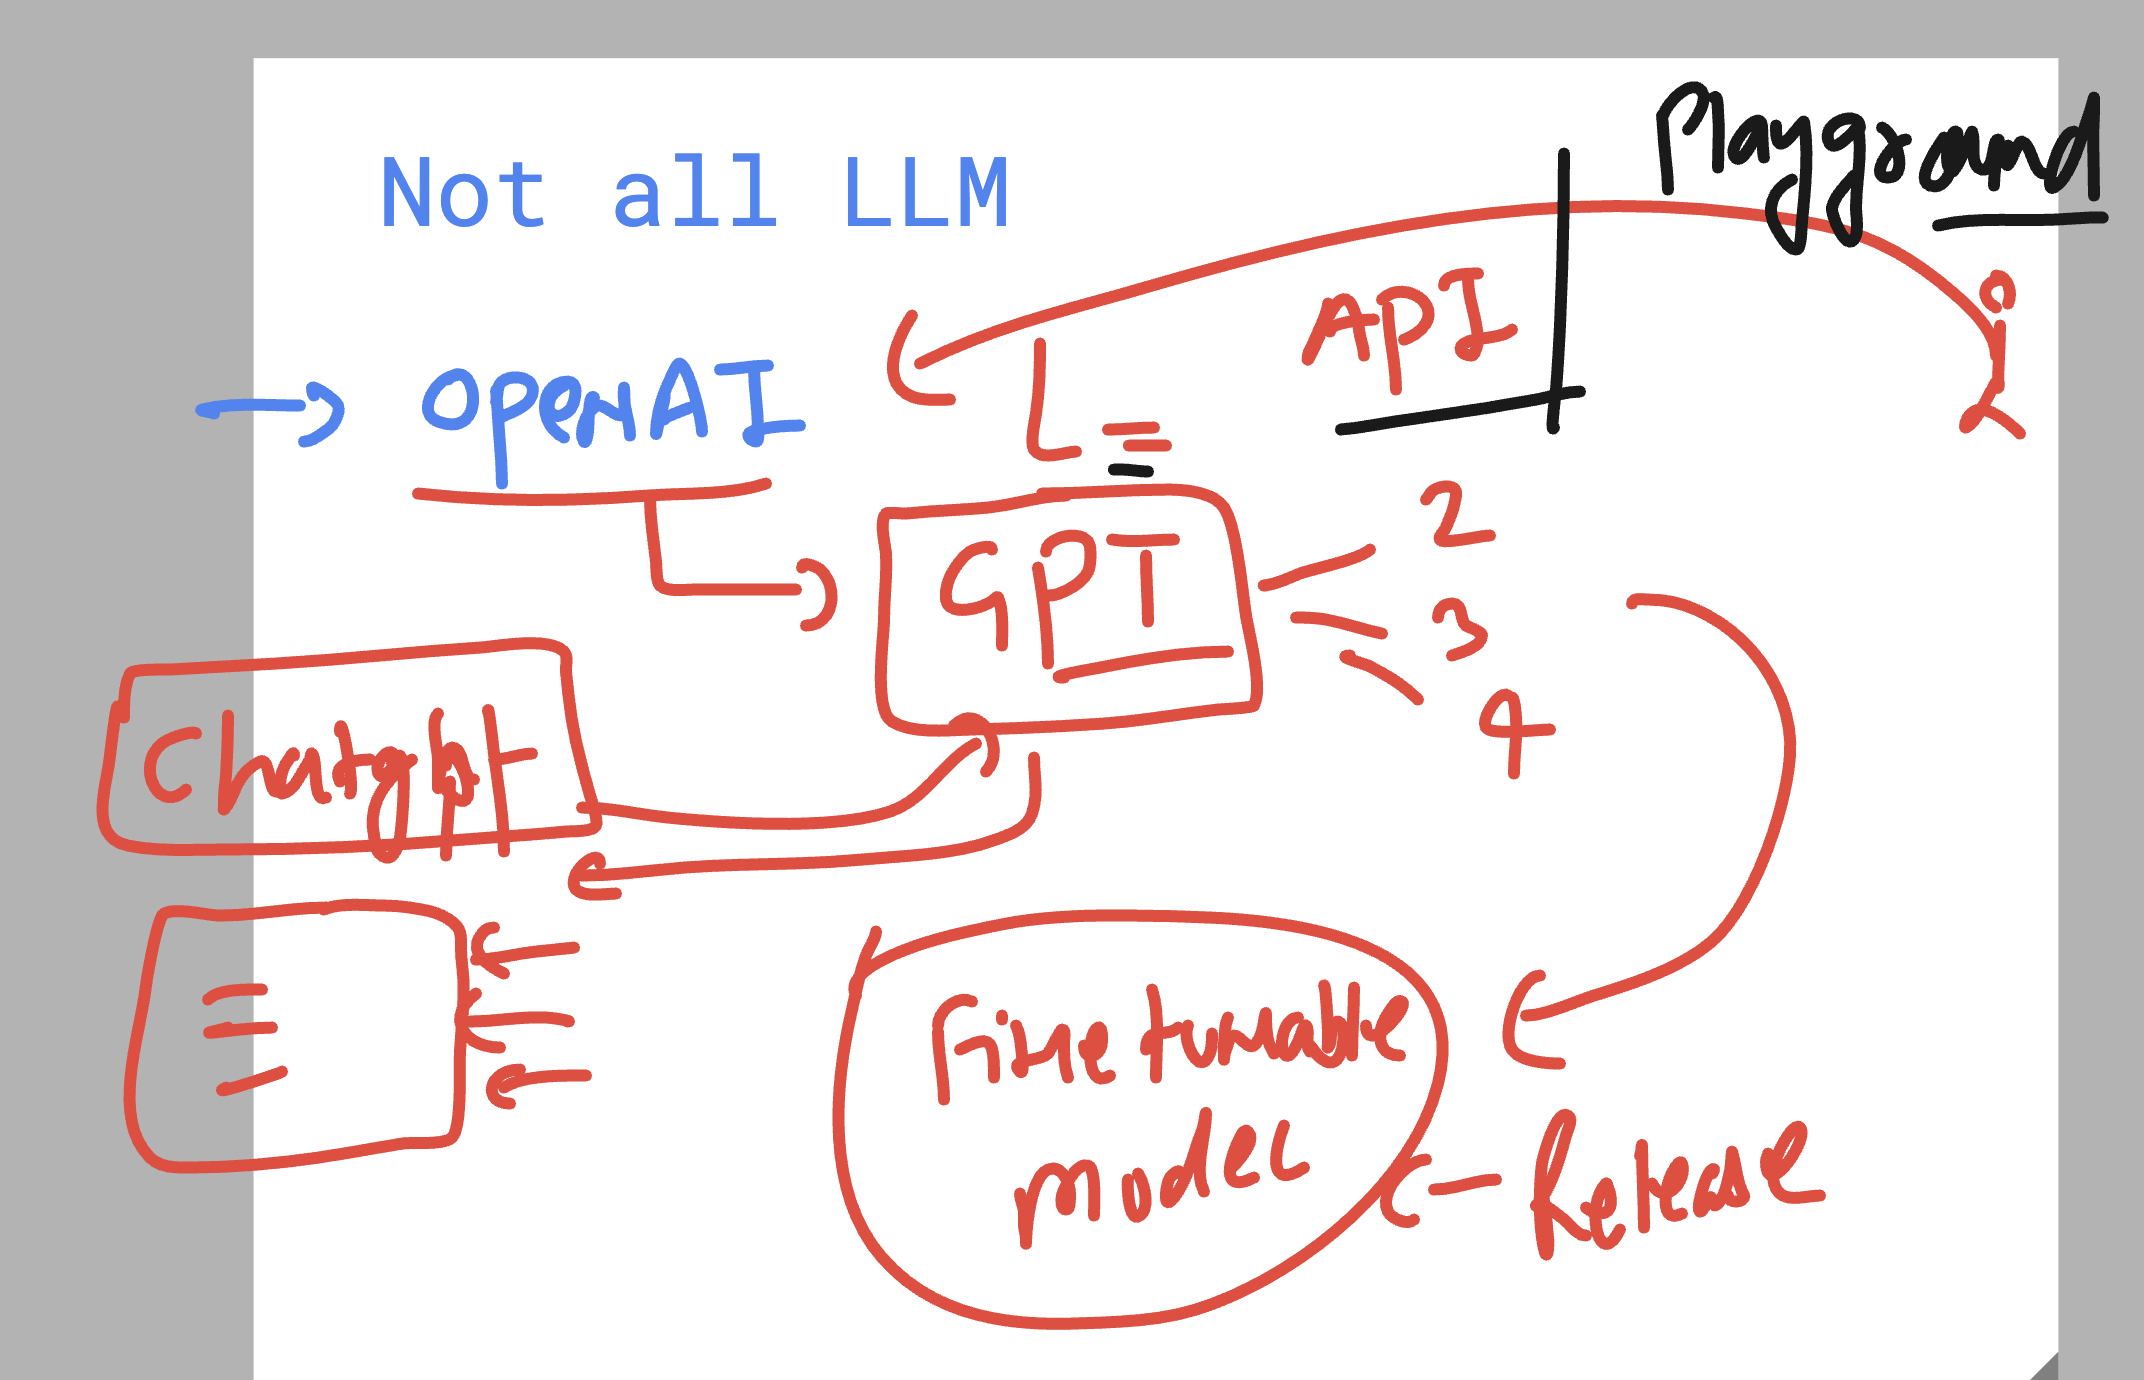 Not all LLM
Playground
API
OpenAI
GPT
2
3
4
Chatgpt
Finetunable
model
Release